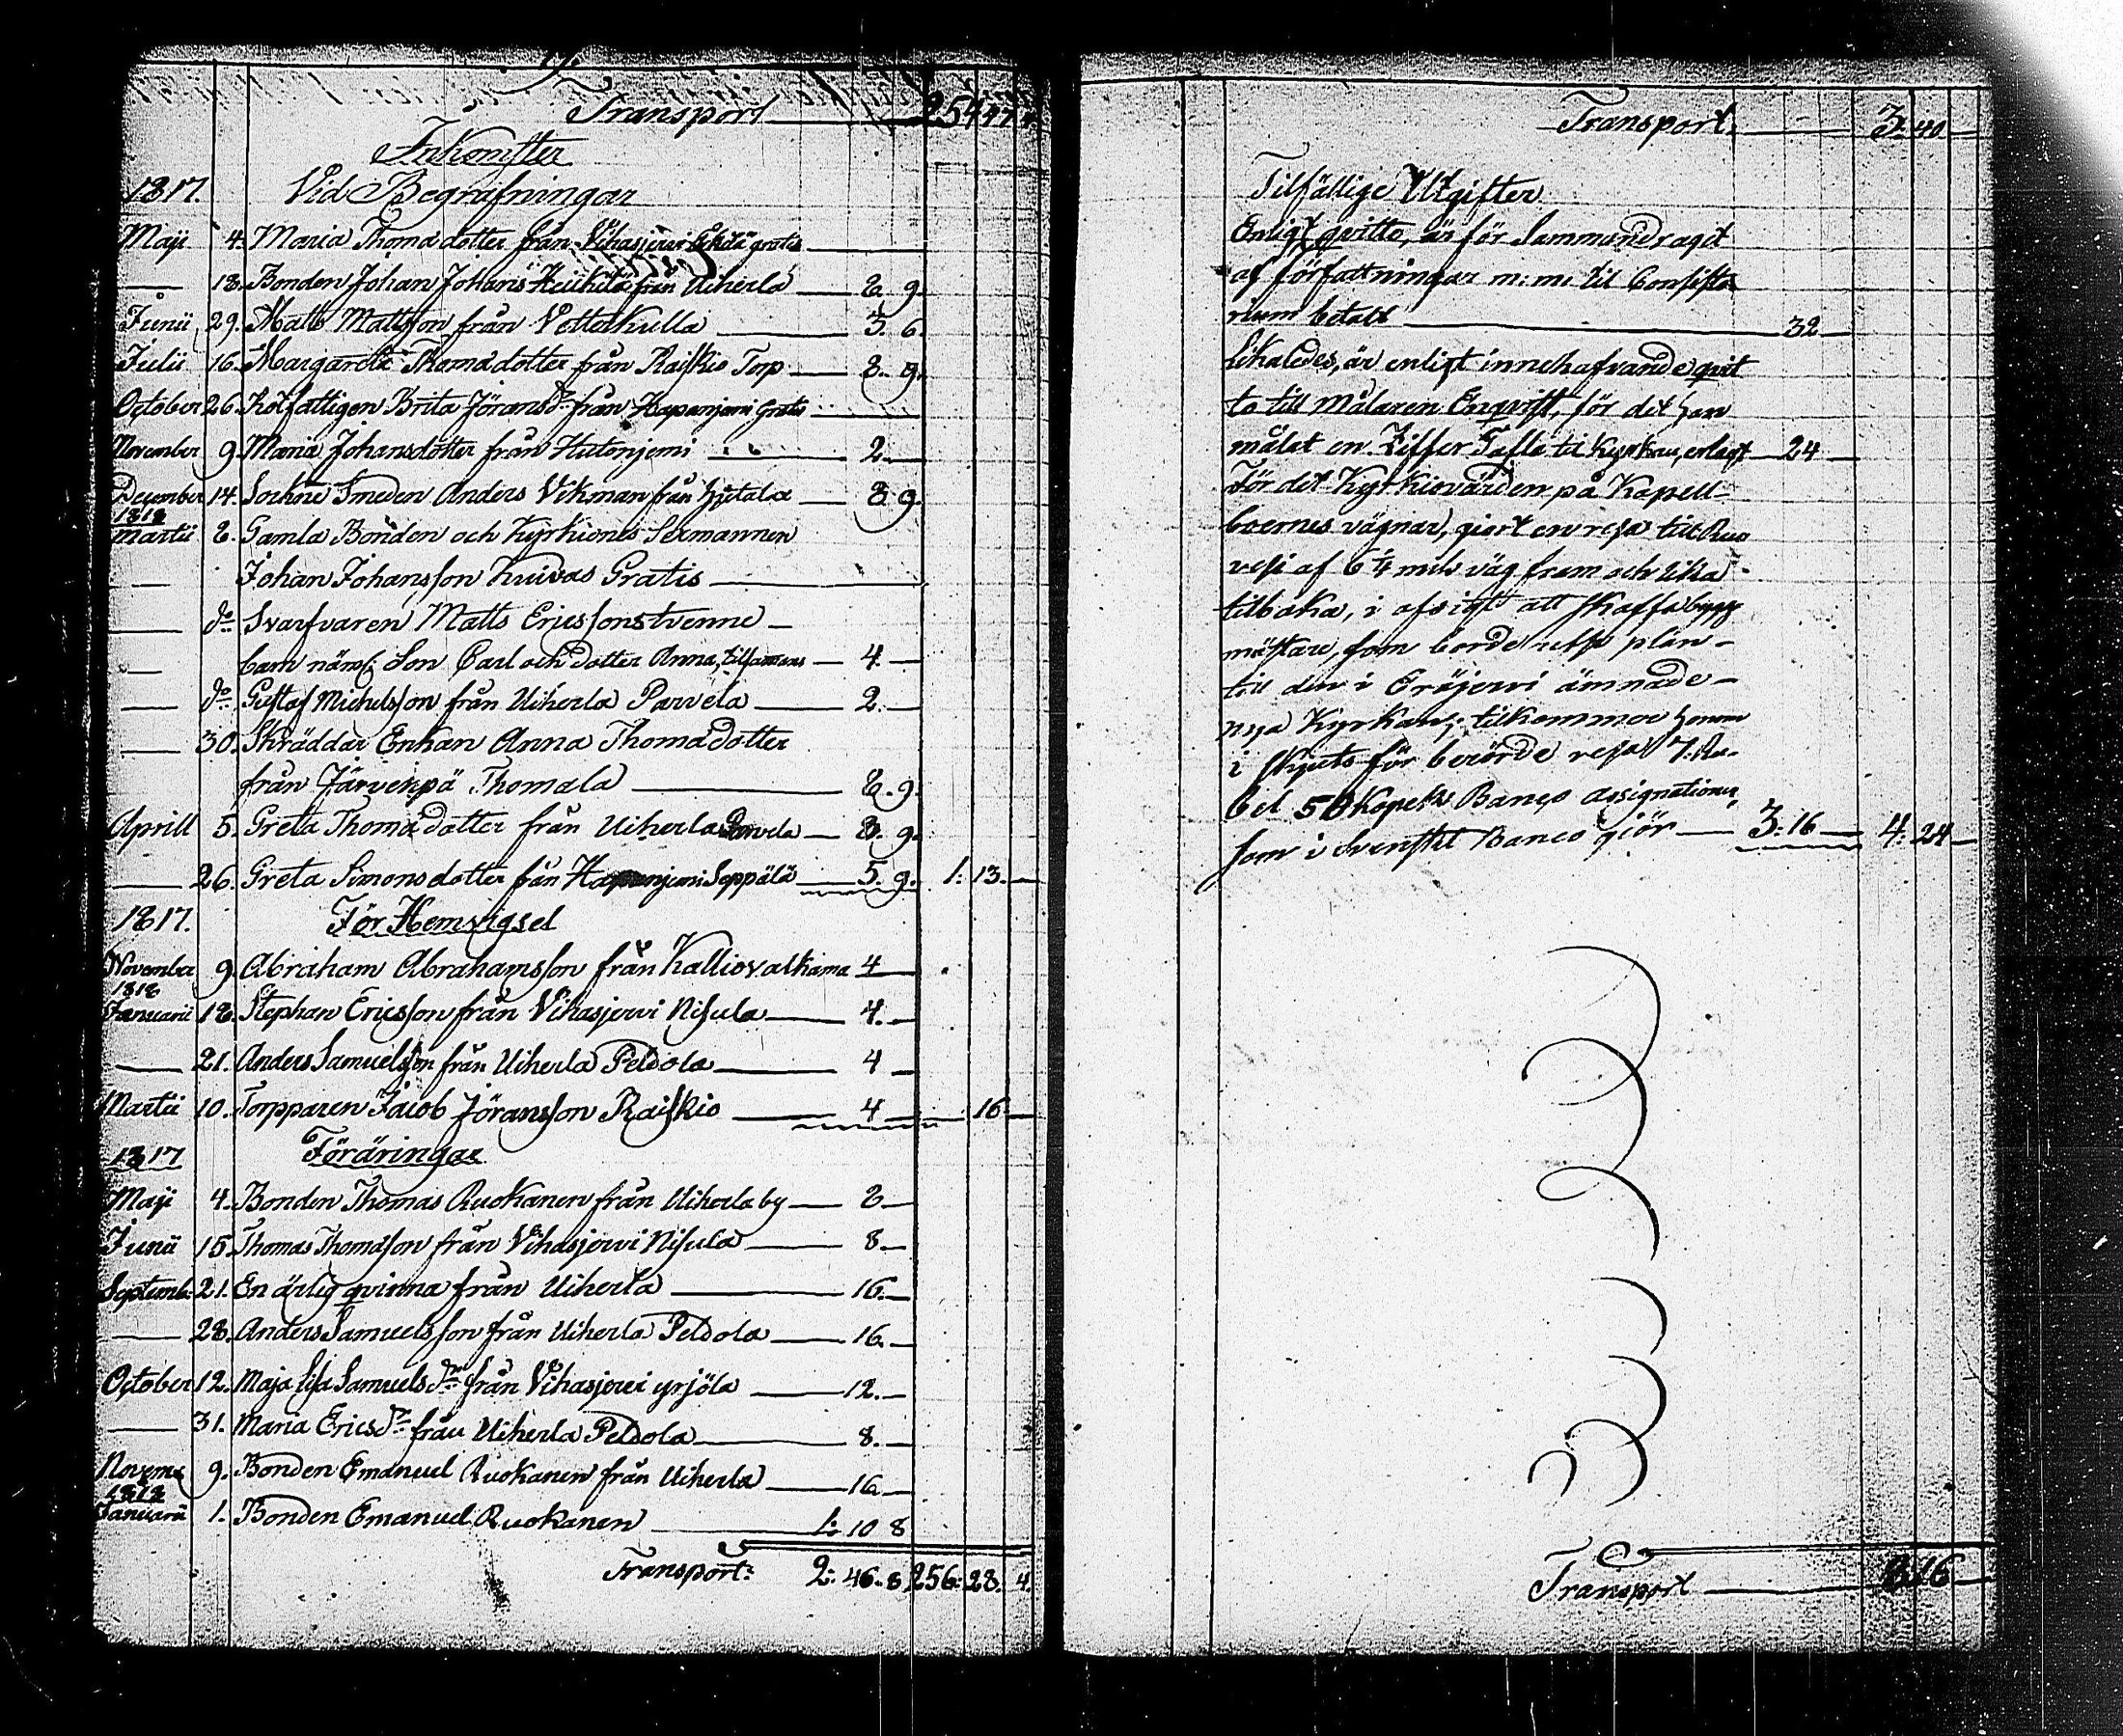 Transport 254 47 4
Inkomster
1817. Vid Begrafningar
Maji 4. Maria Thomadotter från Vihasjervi Eskilä gratis
18. Bonden Johan Johans Heikilä från Uiherla 8. 9.
Junii 29. Matts Mattsson från Vetterkulla 3. 6.
Julii 16. Margareta Thomadotter från Raiskio Torp 8. 9.
October 26. Rotfattigen Brita Jöransdr från Hapanjemi Gratis
November 9. Maria Johansdotter från Hutonjemi 2.
December 14. Sockne Smeden Anders Vikman från Hjetala 8 9.
1818
Martii 8. Gamla Bonden och Kyrkiones Sexmannen
Johan Johansson Knivas Gratis
do Svarfvaren Matts Ericssons tvenne
barn näml: Son Carl och dotter Anna, tilsamans 4.
do Gustaf Michelsson från Uiherla Parvela 2.
30. Skräddar Enkan Anna Thomadotter
från Järvenpä Thomala 8. 9.
Aprill 5. Greta Thomadotter från Uiherla Parvela 8. 9.
26. Greta Simonsdotter från Hapanjemi Seppälä 5. 9. 1: 13.
1817. För Hemvigsel
November 9. Abraham Abrahamsson från Kalliovalkama 4
1818
Januarii 18. Stephan Ericsson från Vihasjervi Nisula 4.
21. Anders Samuelsson från Uiherla Peldola 4
Martii 10. Torpparen Jacob Jöransson Raiskio 4 16
1817 Föräringar
Maji 4. Bonden Thomas Ruokanen från Uiherla by 8
Junii 15. Thomas Thomasson från Vihasjervi Nisula 8.
Septemb: 21. En ärlig qvinna från Uiherla 16.
28. Anders Samuelsson från Uiherla Peldola 16.
October 12. Maja Lisa Samuels dr från Vihasjervi yrjölä 12.
31. Maria Erics dr från Uiherla Peldola 8.
Novemb 9. Bonden Emanuel Ruokanen från Uiherla 16
1818
Januarii 1. Bonden Emanuel Ruokanen 1: 10 8
Transport: 2: 46. 8 256: 28. 4.
Transport 3: 40
Tilfällige Utgifter
Enligt qvitto, är för Sammandraget
af författningar m: m: til Consisto
rium betalt 32
Likaledes, är enligt innehafvande qvit
to till Målaren Enqvist, för det han
målat en Ziffer Tafla til Kyrkan, erlagt 24
För det Kyrkiovärden på Kapell
boernes vägnar, giort en resa till Ruo
vesi af 6 1/4 mils väg fram och lika
tilbaka, i afsigt att skaffa bygg
mästare, som borde plan
till den i Eräjervi ämnade
nya Kyrkan; tilkommer honom
i skjuts för berörde resa 7. Ru
bel 50 Kopek Banco assignationer,
som i Svenskt Banco giör 3: 16 4: 24
Transport 8: 16